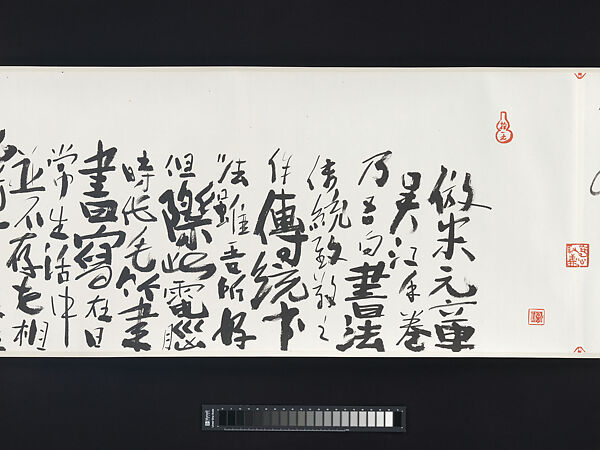 倣米元章
吳江手卷
乃吾向書法
傳統致敬之
作傳統書
法雖吾所好
但際此電腦
時代毛筆
書寫在日
常生活中
並不存在相